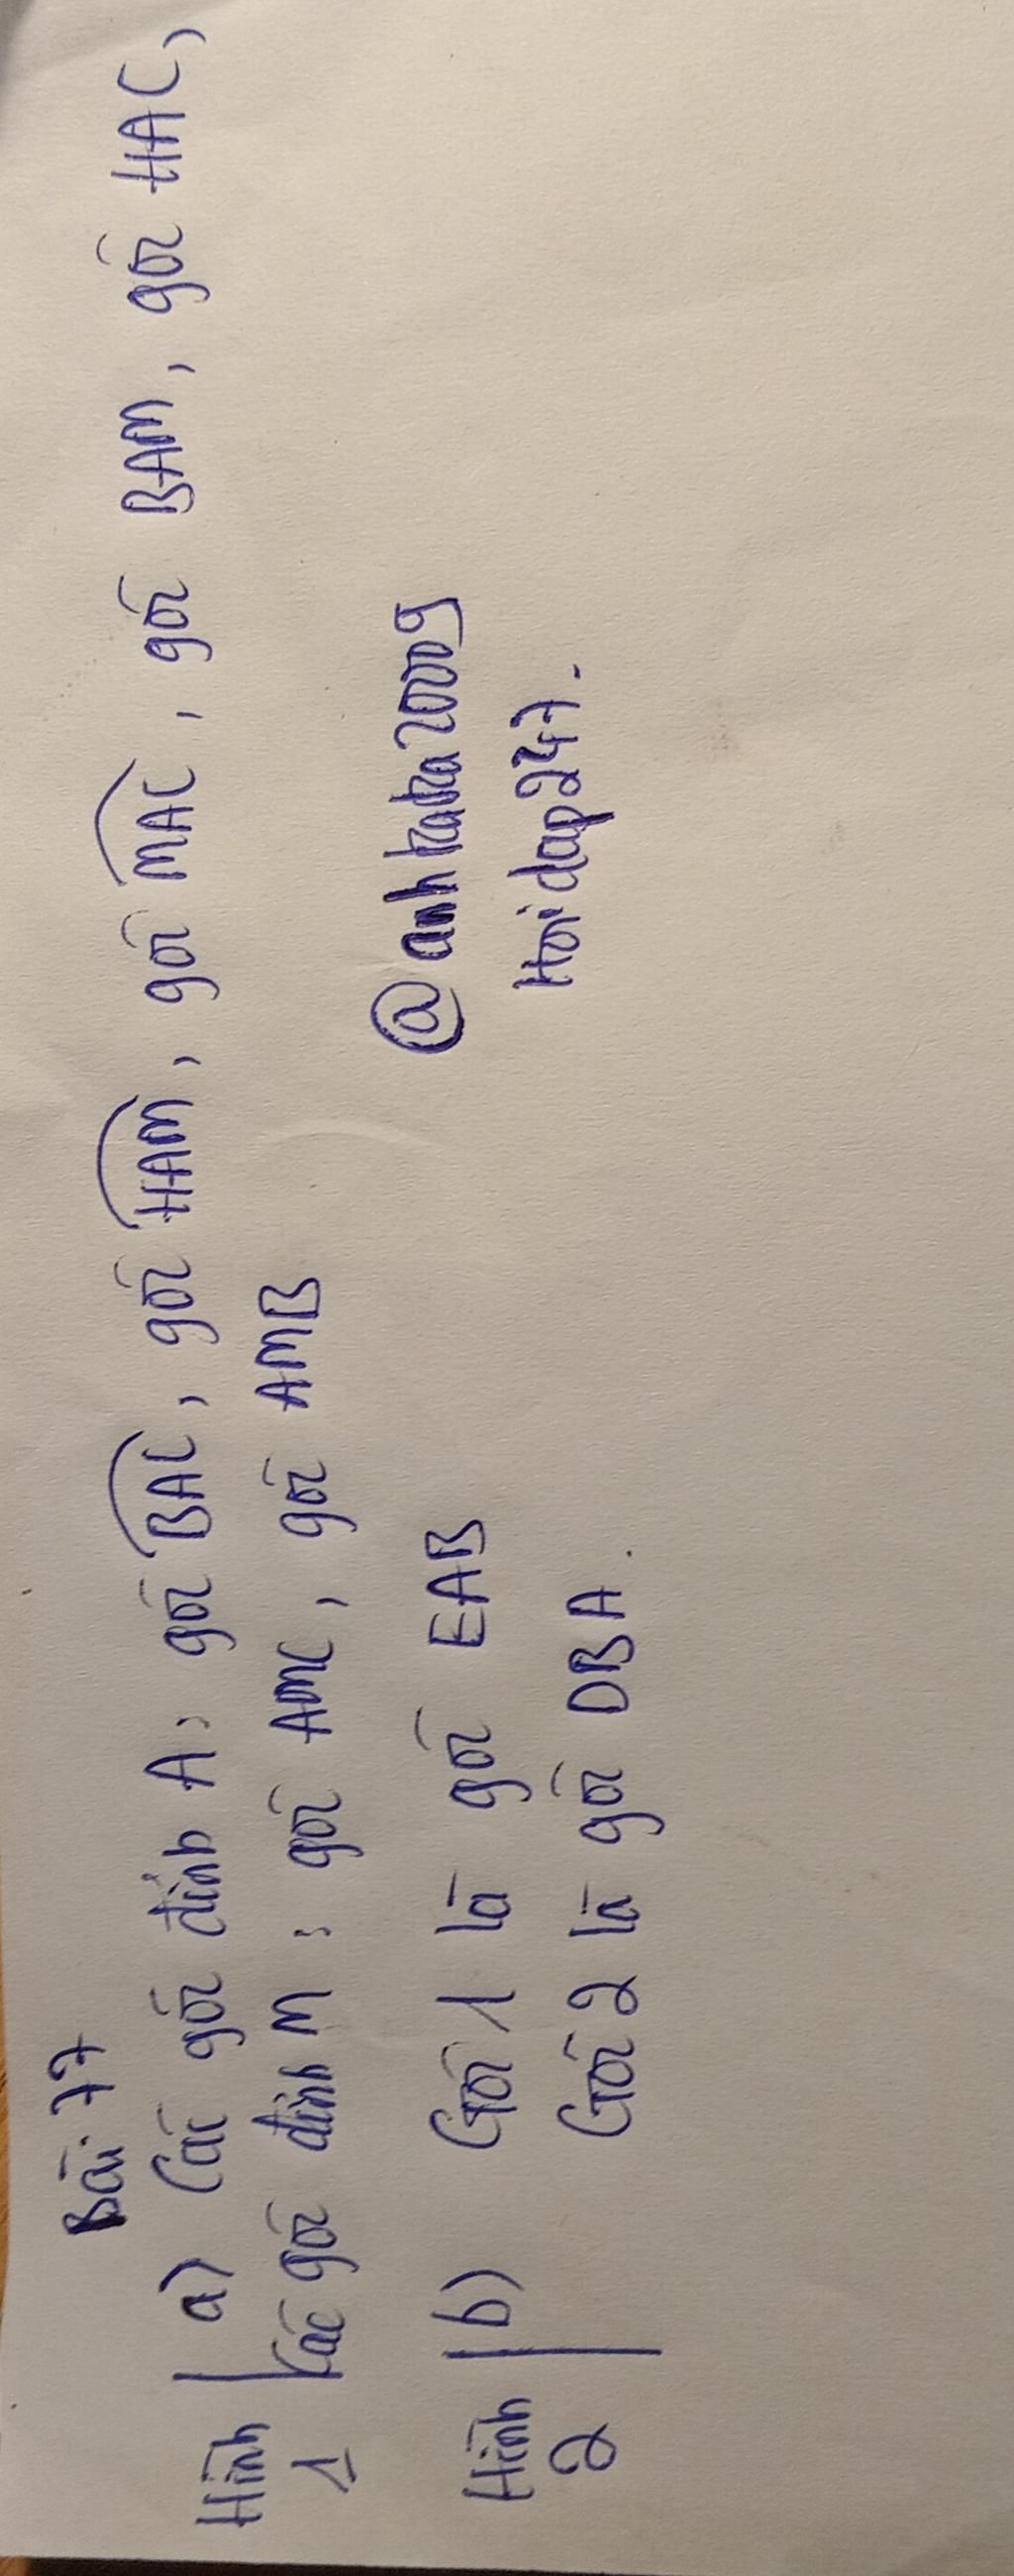 Bài 77
Hình 1 | a) Các góc đỉnh A: góc BAC, góc HAM, góc MAC, góc BAM, góc HAC,
Các góc đỉnh M: góc AMC, góc AMB
Hình 2 | b) Góc 1 là góc EAB
Góc 2 là góc DBA.
@anhkaka20009
Hoidap247.